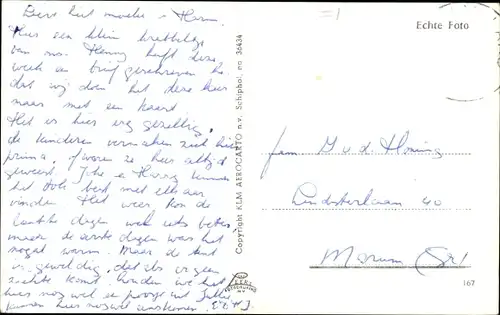 Hier een klein krabbeltje
van ons. Henny heeft deze
week een brief geschreven
dat wij doen het deze keer
maar met een kaart
Het is hier erg gezellig,
de kinderen vermaken zich hier
prima, of ze hier altijd
geweest. Ine en Harry kunnen
het ook best met elkaar
vinden Het weer kon de
laatste dagen wel iets beter,
maar de eerste dagen was het
nogal warm. Maar de tent
is geweldig, dat als er geen
ziekte komt houden we het
hier nog wel een poosje uit. Jullie
komen hier nog wel
Echte Foto
Copyright KLM AEROCARTO n.v. Schiphol, no 36434
fam J v.d. Honing
Lindsterlaan 40
Marum (Gr)
167